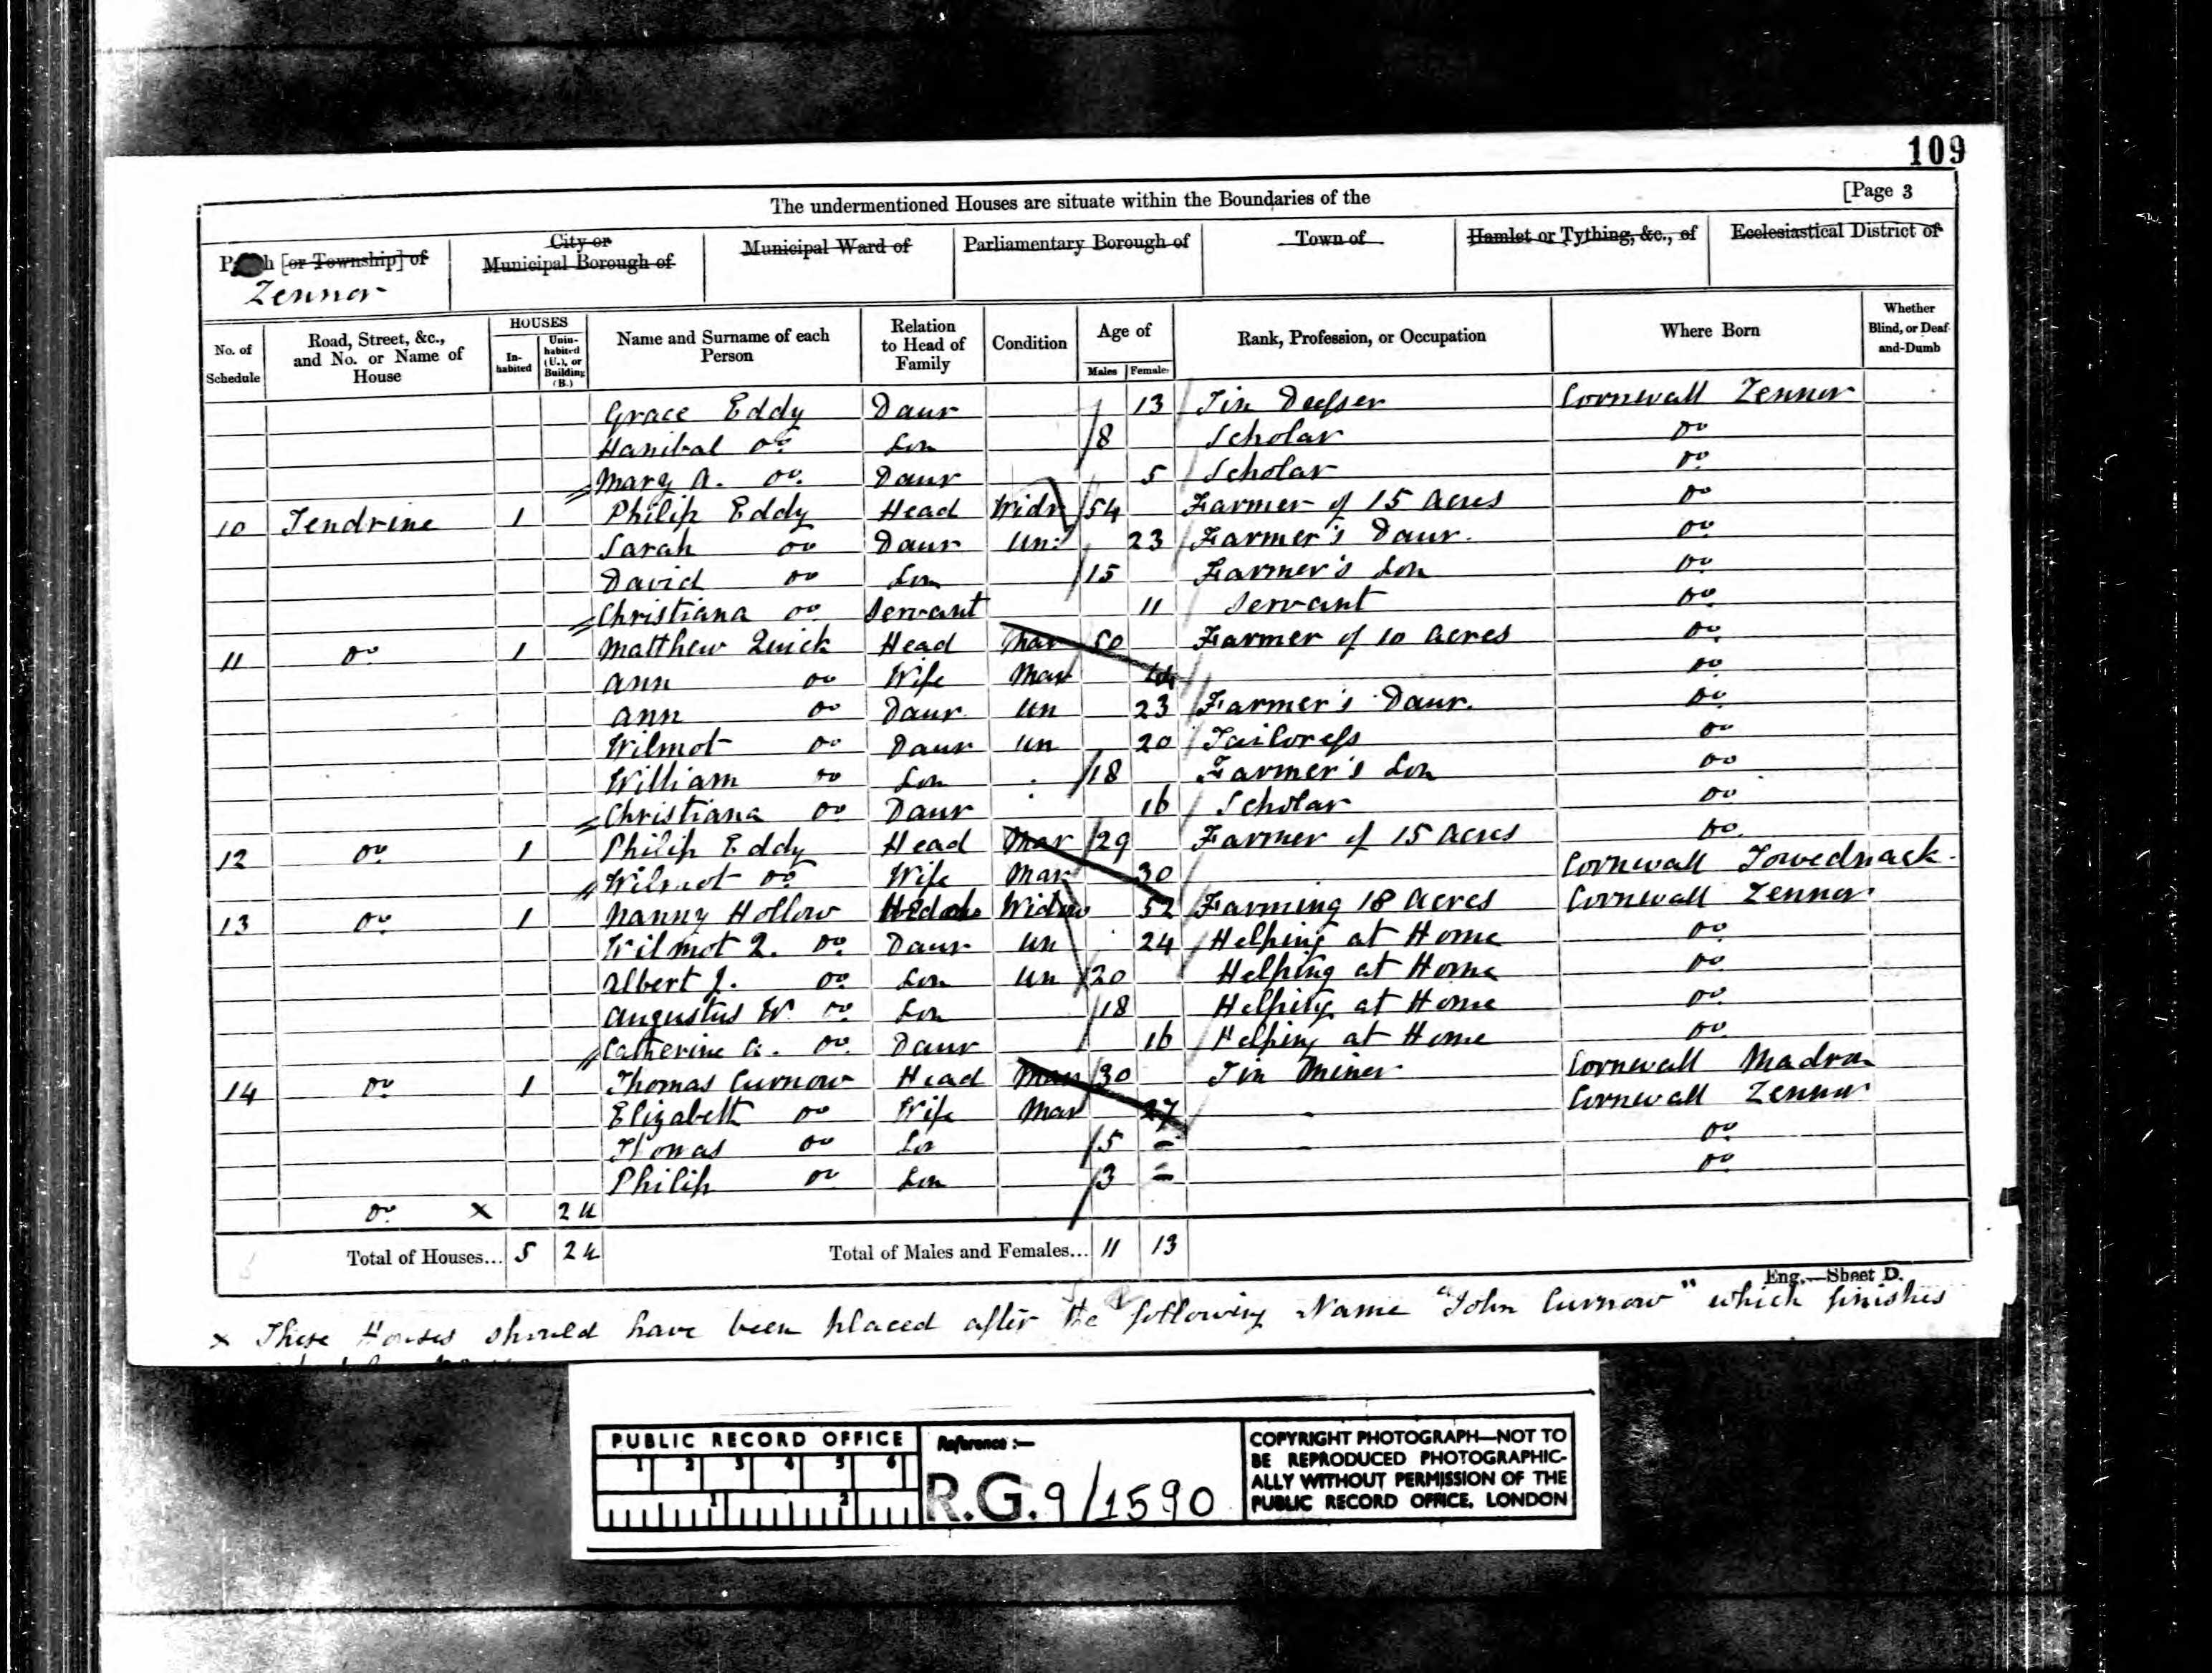 109
The undermentioned Houses are situate within the Boundaries of the [Page 3
Parish [or Township] of
Zennor
City or Municipal Borough of
Municipal Ward of
Parliamentary Borough of
Town of
Hamlet or Tything, &c., of
Ecclesiastical District of
No. of Schedule
Road, Street, &c., and No. or Name of House
HOUSES
In-habited
Unin-habited (U.), or Building (B.)
Name and Surname of each Person
Relation to Head of Family
Condition
Age of
Males Females
Rank, Profession, or Occupation
Where Born
Whether Blind, or Deaf-and-Dumb
Grace Eddy Daur 13 Tin Cornwall Zennor
Hanibal Do Son 8 Scholar Do
Mary A. Do Daur 5 Scholar Do
10 Tendrine 1 Philip Eddy Head Widr 54 Farmer of 15 Acres Do
Sarah Do Daur Un: 23 Farmer's Daur. Do
David Do Son 15 Farmer's Son Do
Christiana Do Servant 11 Servant Do
11 Do 1 Matthew Quick Head Mar 50 Farmer of 10 Acres Do
Ann Do Wife Mar Do
Ann Do Daur Un 23 Farmer's Daur. Do
Wilmot Do Daur Un 20 Tailoress Do
William Do Son 18 Farmer's Son Do
Christiana Do Daur 16 Scholar Do
12 Do 1 Philip Eddy Head Mar 29 Farmer of 15 Acres Do
Wilmot Do Wife Mar 30 Cornwall Towednack
13 Do 1 Nanny Hollow Head Widow 52 Farming 18 Acres Cornwall Zennor
Wilmot Q. Do Daur Un 24 Helping at Home Do
Albert J. Do Son Un 20 Helping at Home Do
Augustus W. Do Son 18 Helping at Home Do
Catherine A. Do Daur 16 Helping at Home Do
14 Do 1 Thomas Curnow Head Mar 30 Tin Miner Cornwall Madron
Elizabeth Do Wife Mar 27 Cornwall Zennor
Thomas Do Son 5 Do
Philip Do Son 3 Do
Do X 2 U
Total of Houses... 5 2 U Total of Males and Females... 11 13
Eng.—Sheet D.
x These Houses should have been placed after the following Name "John Curnow" which finishes
PUBLIC RECORD OFFICE
1 2 3 4 5 6
1 2
Reference :—
R.G. 9/1590
COPYRIGHT PHOTOGRAPH—NOT TO
BE REPRODUCED PHOTOGRAPHIC-
ALLY WITHOUT PERMISSION OF THE
PUBLIC RECORD OFFICE, LONDON